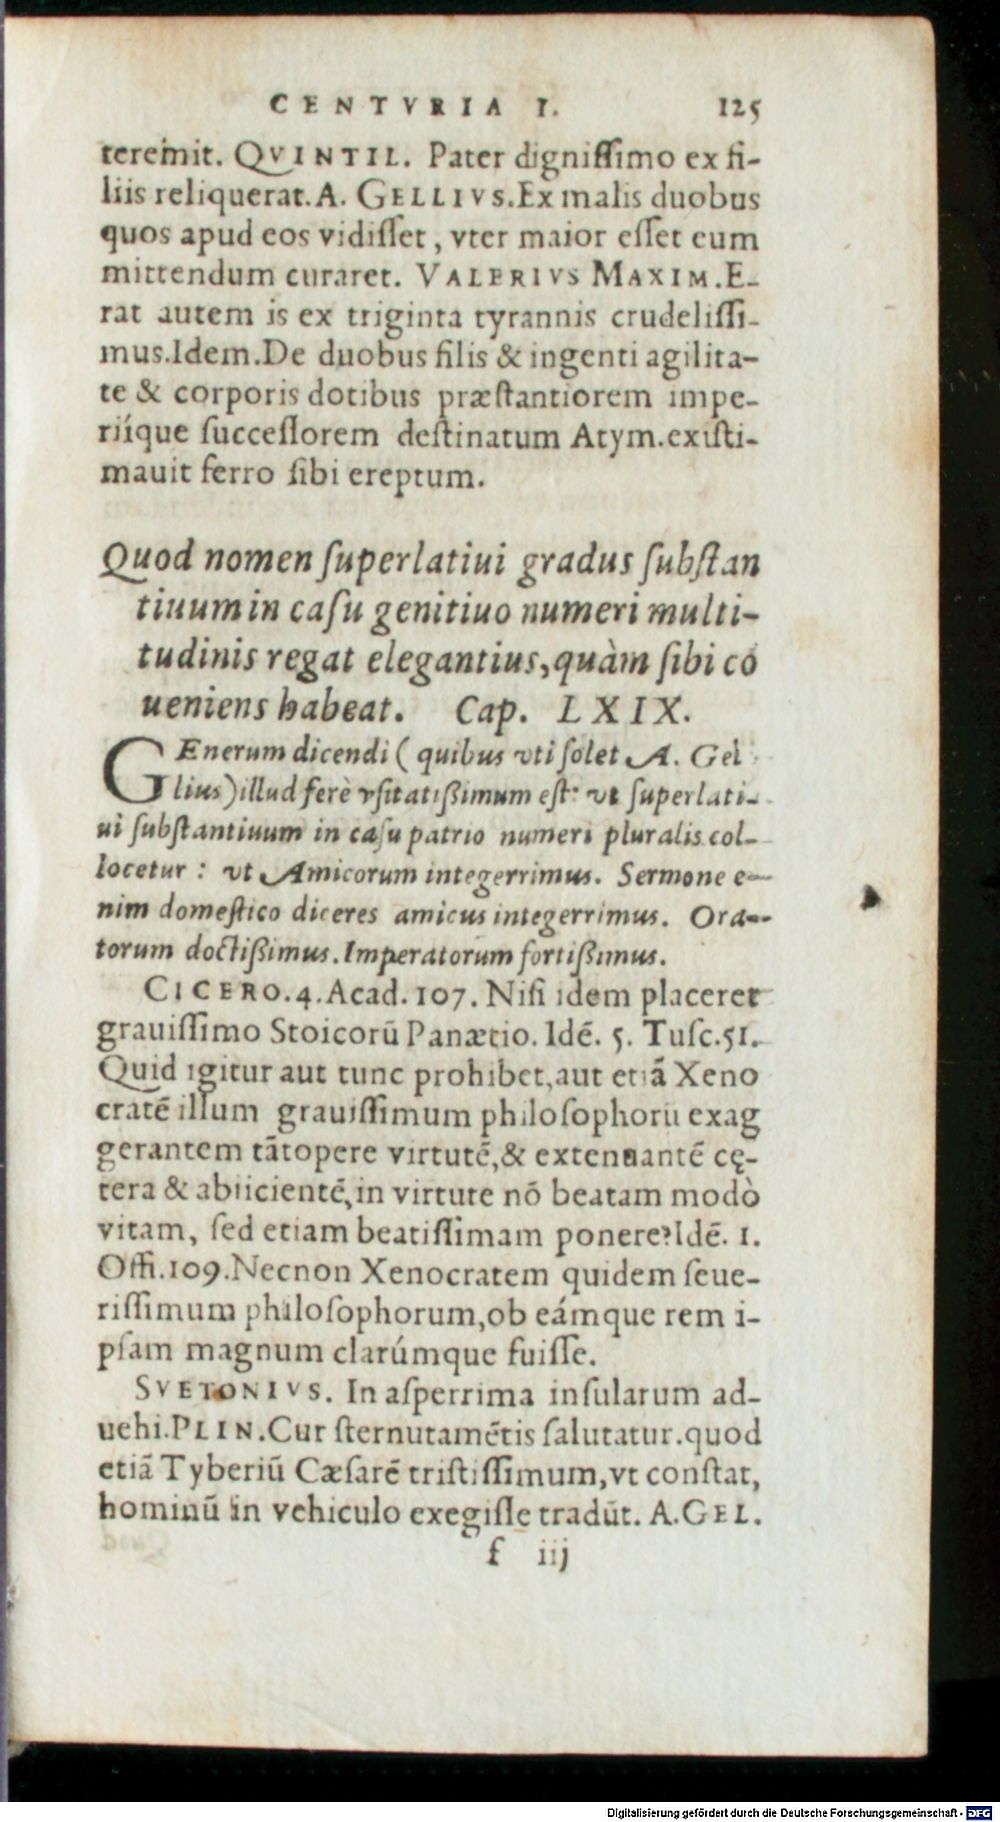 CENTVRIA I. 125
teremit. QVINTIL. Pater digniſſimo ex fi-
liis reliquerat. A. GELLIVS. Ex malis duobus
quos apud eos vidiſſet, vter maior eſſet eum
mittendum curaret. VALERIVS MAXIM. E-
rat autem is ex triginta tyrannis crudeliſſi-
mus. Idem. De duobus filis & ingenti agilita-
te & corporis dotibus præſtantiorem impe-
riíque ſucceſſorem deſtinatum Atym. exiſti-
mauit ferro ſibi ereptum.
Quod nomen ſuperlatiui gradus ſubſtan
tiuum in caſu genitiuo numeri multi-
tudinis regat elegantius, quàm ſibi cō
ueniens habeat. Cap. LXIX.
GEnerum dicendi (quibus vti ſolet A. Gel
lius) illud ferè vſitatißimum eſt: vt ſuperlati-
ui ſubſtantiuum in caſu patrio numeri pluralis col-
locetur: vt Amicorum integerrimus. Sermone e-
nim domeſtico diceres amicus integerrimus. Ora-
torum doctißimus. Imperatorum fortißimus.
CICERO. 4. Acad. 107. Niſi idem placeret
grauiſſimo Stoicorū Panætio. Idē. 5. Tuſc. 51.
Quid igitur aut tunc prohibet, aut etiā Xeno
cratē illum grauiſſimum philoſophorū exag
gerantem tātopere virtutē, & extenuantē cę-
tera & abiicientē, in virtute nō beatam modò
vitam, ſed etiam beatiſſimam ponere? Idē. 1.
Offi. 109. Necnon Xenocratem quidem ſeue-
riſſimum philoſophorum, ob eámque rem i-
pſam magnum clarúmque fuiſſe.
SVETONIVS. In aſperrima inſularum ad-
uehi. PLIN. Cur ſternutamētis ſalutatur. quod
etiā Tyberiū Cæſarē triſtiſſimum, vt conſtat,
hominū in vehiculo exegiſſe tradūt. A. GEL.
f iij
Digitalisierung gefördert durch die Deutsche Forschungsgemeinschaft - DFG